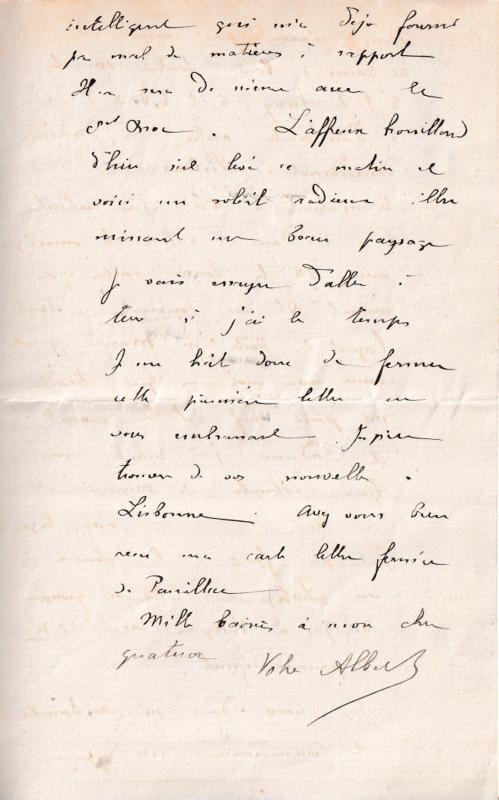 intelligent qui m'a déjà fourni
pas mal de matières à rapport
Il en sera de même avec le
L'affreux brouillard
d'hier s'est levé ce matin et
voici un soleil radieux illu
minant un beau paysage
Je vais essayer d'aller à
terre si j'ai le temps
Je me hâte donc de fermer
cette première lettre en
vous embrassant. J'espère
trouver de vos nouvelles à
Lisbonne. Avez vous bien
reçu ma carte lettre fermée
de Pauillac
Mille baisers à mon cher
quatuor Votre Albert